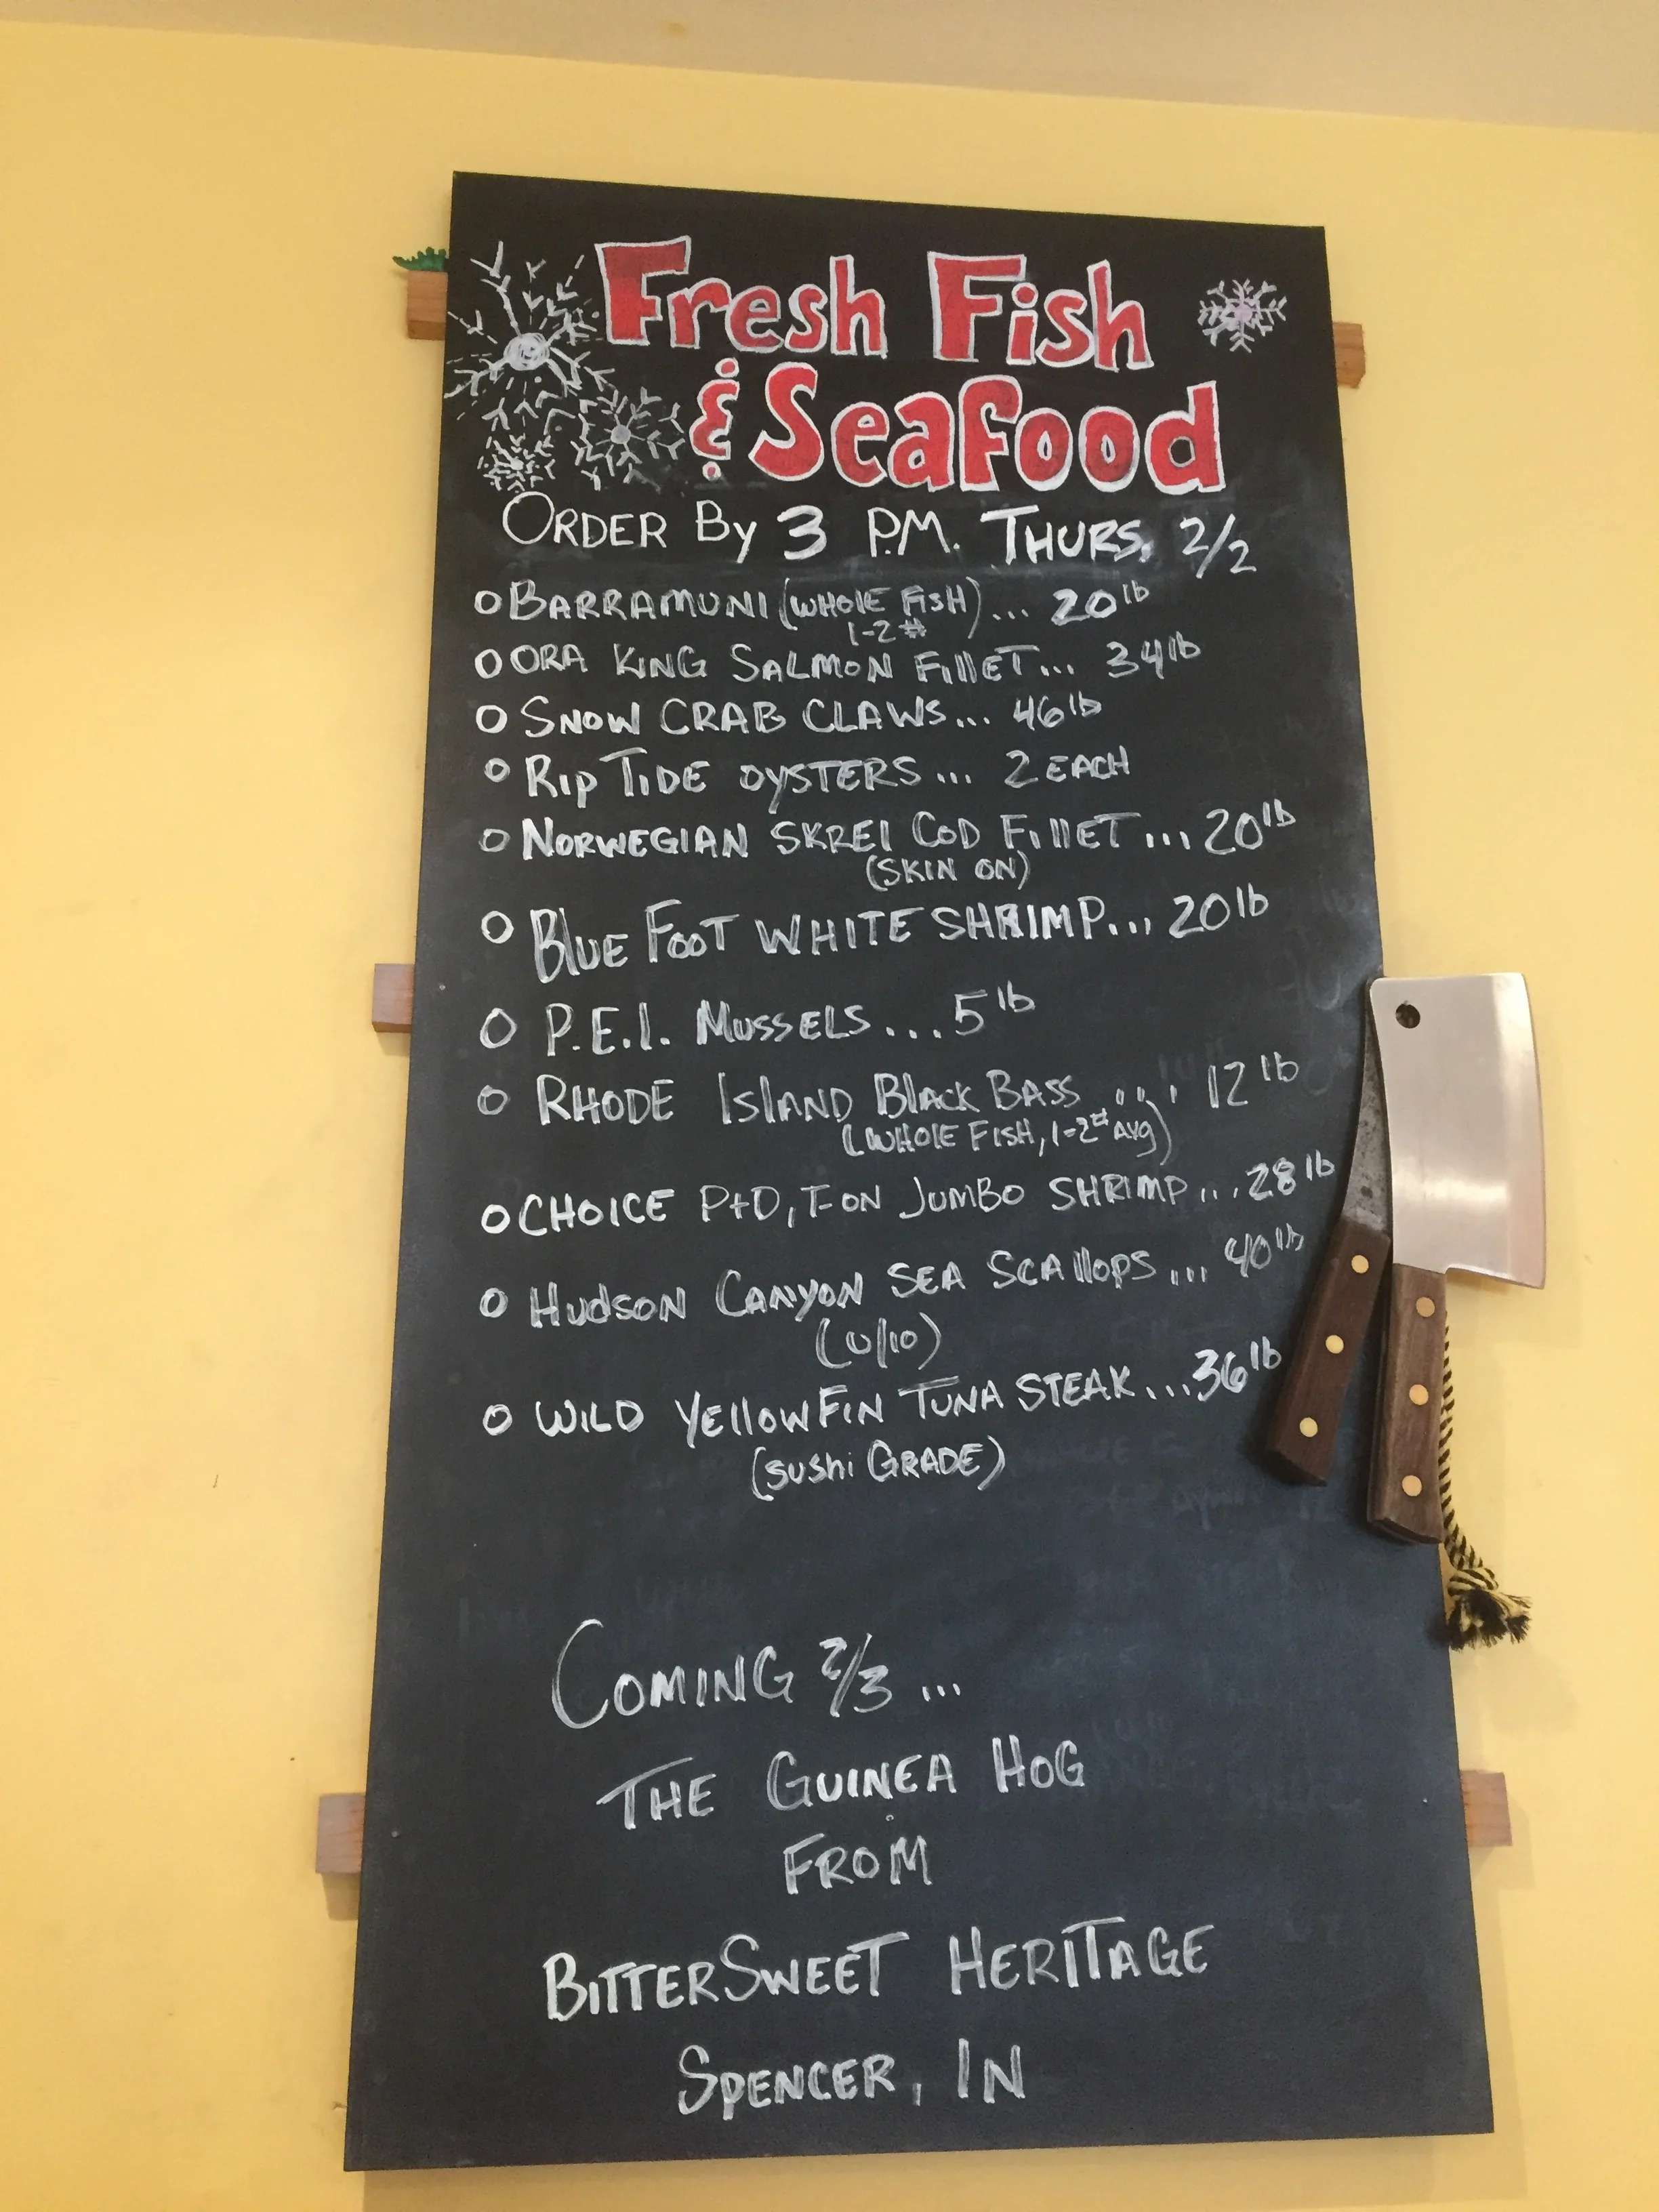 Fresh Fish
& Seafood
ORDER By 3 P.M. THURS. 2/2
BARRAMUNI (WHOLE FISH) ... 20 lb
1-2#
ORA KING SALMON FILLET... 34lb
SNOW CRAB CLAWS... 46lb
RIP TIDE OYSTERS ... 2 EACH
NORWEGIAN SKREI COD FILLET ... 20lb
(SKIN ON)
BLUE FOOT WHITE SHRIMP... 20lb
P.E.I. MUSSELS ... 5 lb
RHODE ISLAND BLACK BASS .... 12 lb
(WHOLE FISH, 1-2# AVG)
CHOICE P+D, T-ON JUMBO SHRIMP ... 28 lb
HUDSON CANYON SEA SCALLOPS ... 40lb
(U/10)
WILD YELLOWFIN TUNA STEAK ... 36lb
(SUSHI GRADE)
COMING 2/3 ...
THE GUINEA HOG
FROM
BITTERSWEET HERITAGE
SPENCER, IN